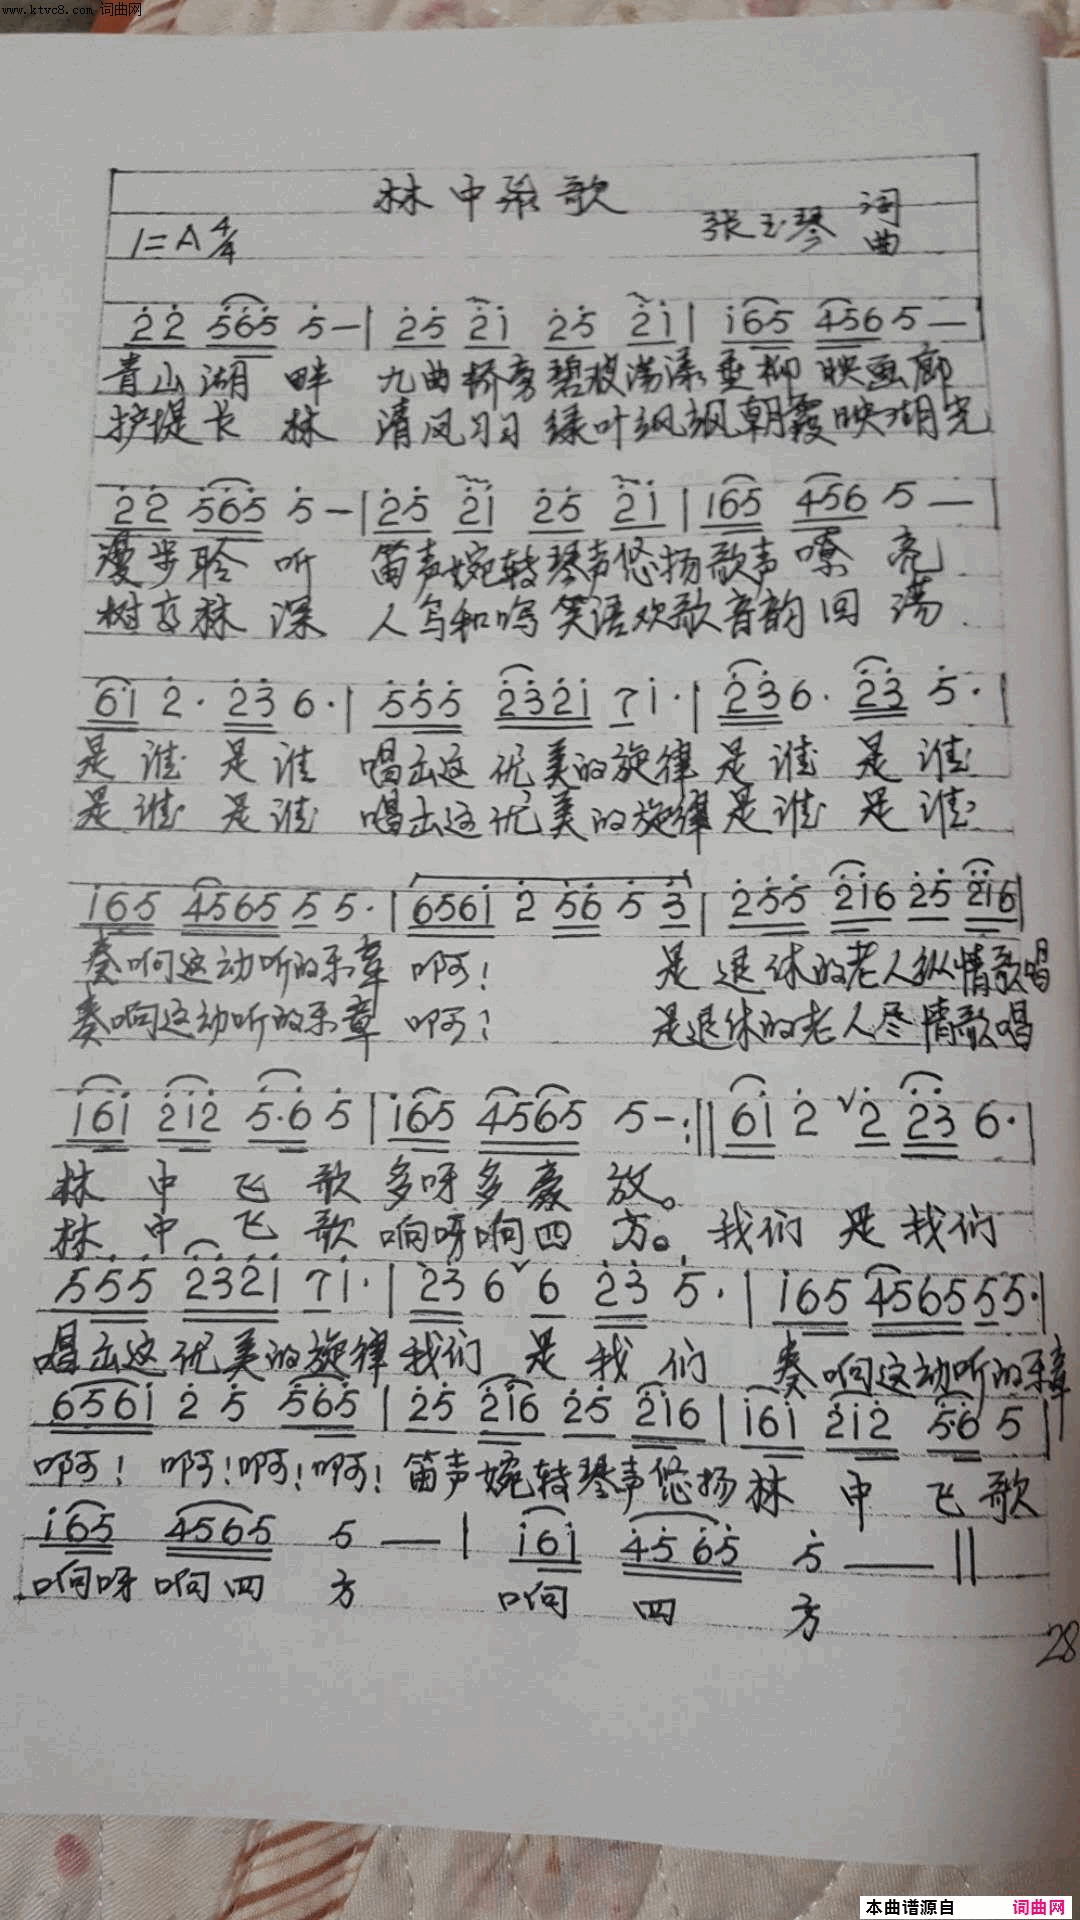 www.ktvc8.com 词曲网
林中飞歌
1=A 4/4 张玉琴 词曲
2̇2̇ 5̇6̇5̇ 5̇— | 2̇5̇ 2̇1̇ 2̇5̇ 2̇1̇ | 1̇65 4565 —
青山湖畔 九曲桥旁碧波荡漾垂柳映画廊
护堤长林 清风习习绿叶飒飒朝霞映湖光
2̇2̇ 5̇6̇5̇ 5̇— | 2̇5̇ 2̇1̇ 2̇5̇ 2̇1̇ | 165 456 5 —
漫步聆听 笛声婉转琴声悠扬歌声嘹亮
树高林深 人鸟和鸣笑语欢歌音韵回荡
61̇ 2̇· 2̇3̇ 6· | 5̇5̇5̇ 2̇3̇2̇1̇ 71̇· | 2̇3̇6· 2̇3̇ 5̇· |
是谁是谁 唱出这优美的旋律是谁是谁
是谁是谁 唱出这优美的旋律是谁是谁
1̇65 4565 5 5· | 6561̇ 2̇ 5̇6̇ 5̇ 3̇ | 2̇5̇5̇ 2̇1̇6 2̇5̇ 2̇1̇6 |
奏响这动听的乐章 啊! 是退休的老人纵情歌唱
奏响这动听的乐章 啊! 是退休的老人尽情歌唱
1̇61̇ 2̇1̇2̇ 5̇·6̇ 5̇ | 1̇65 4565 5—:|| 61̇ 2̇ ∨2̇ 2̇3̇ 6· |
林中飞歌多呀多豪放。
林中飞歌响呀响四方。我们是我们
5̇5̇5̇ 2̇3̇2̇1̇ 71̇· | 2̇3̇ 6∨6 2̇3̇ 5̇· | 1̇65 4565 55· |
唱出这优美的旋律我们是我们 奏响这动听的乐章
6561̇ 2̇ 5̇ 5̇6̇5̇ | 2̇5̇ 2̇1̇6 2̇5̇ 2̇1̇6 | 1̇61̇ 2̇1̇2̇ 5̇6̇ 5̇ |
啊! 啊!啊!啊! 笛声婉转琴声悠扬林中飞歌
1̇65 4565 5 — | 1̇61̇ 4̇5̇6̇5̇ 5̇ — ||
响呀响四方 响四方
28
本曲谱源自 词曲网